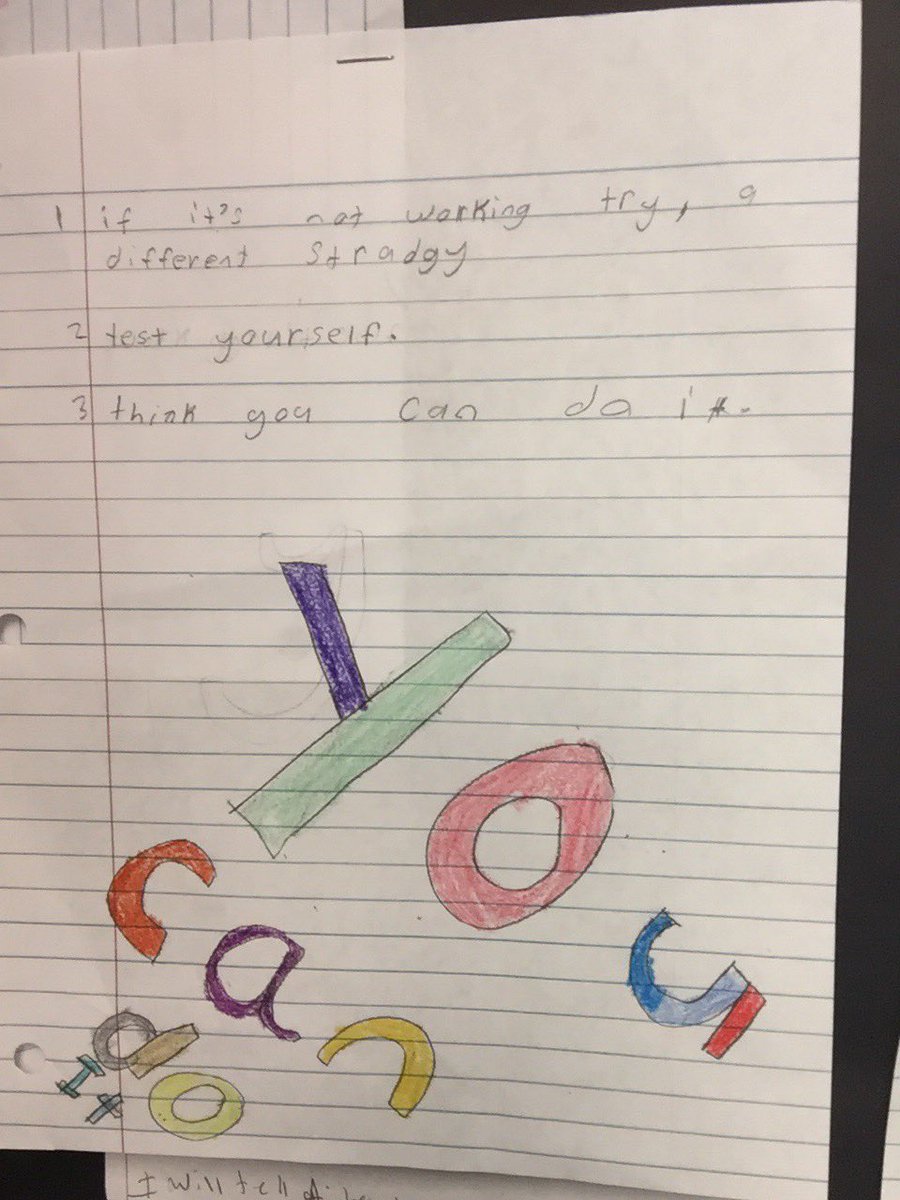 1 if it's not working try, a
different stradgy
2 test yourself.
3 think you can do it.
You
can
do
it
I will tell